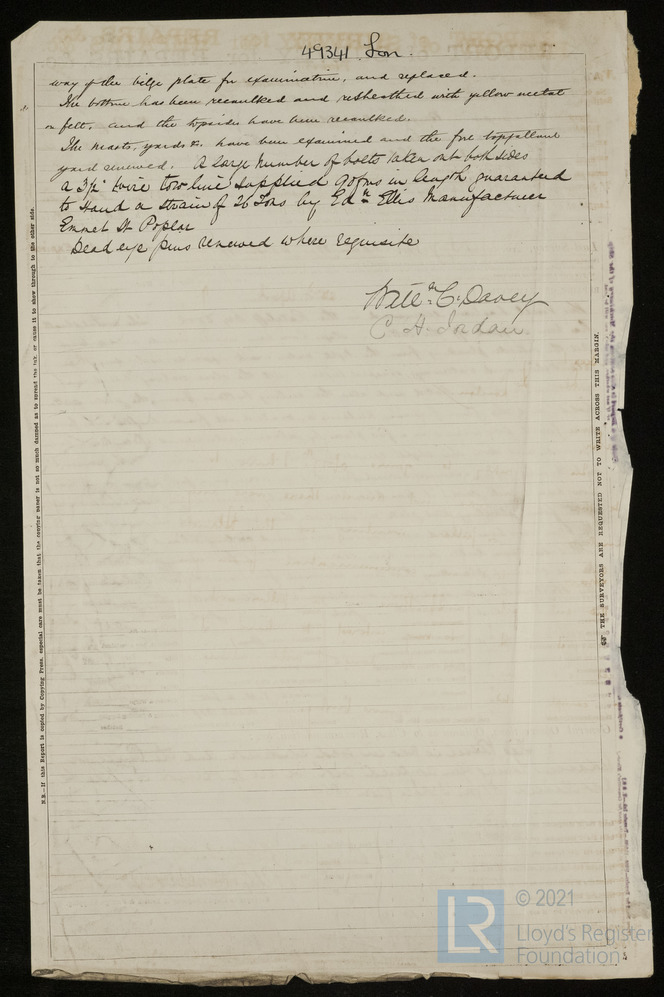 49341 Lon.
way of the bilge plate for examination, and replaced.
The bottom has been recaulked and resheathed with yellow metal
on felt, and the topsides have been recaulked.
The masts, yards &c. have been examined and the fore topgallant
yard renewed. A large number of bolts taken out both sides
a 3½" wire tow line supplied 90 fms in length guaranteed
to stand a strain of 26 Tons by Edwd Ellis Manufacturer
Emmet St Poplar
Dead eye pins renewed where requisite
C. Davey
C. H. Jordan
N.B.—If this Report is copied by Copying Press, especial care must be taken that the copying paper is not so much damped as to spread the ink, or cause it to show through to the other side.
THE SURVEYORS ARE REQUESTED NOT TO WRITE ACROSS THIS MARGIN.
LR
© 2021
Lloyd's Register
Foundation